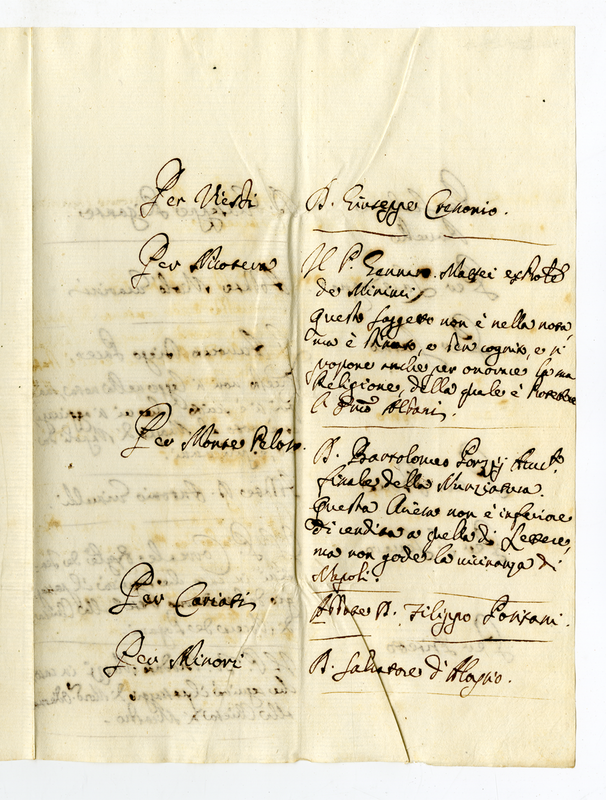 Per Viesti
D. Giuseppe Cremonio.
Per Nicotera
Il P. Gennaro Massei
de Minimi,
questo soggetto non è nella nota,
ma è e ben cognito, e si
propone anche per onorare la sua
Religione, della quale è
il Albani.
Per Monte Peloso.
D. Bartolomeo Porzij
fiscale della Nunziatura.
Questa Chiesa non è inferiore
di rendita a quella di Lettere,
ma non gode la vicinanza di
Napoli.
Per Cariati
Abbate D. Filippo
Per Minori
D. Salvatore d'Aloysio.